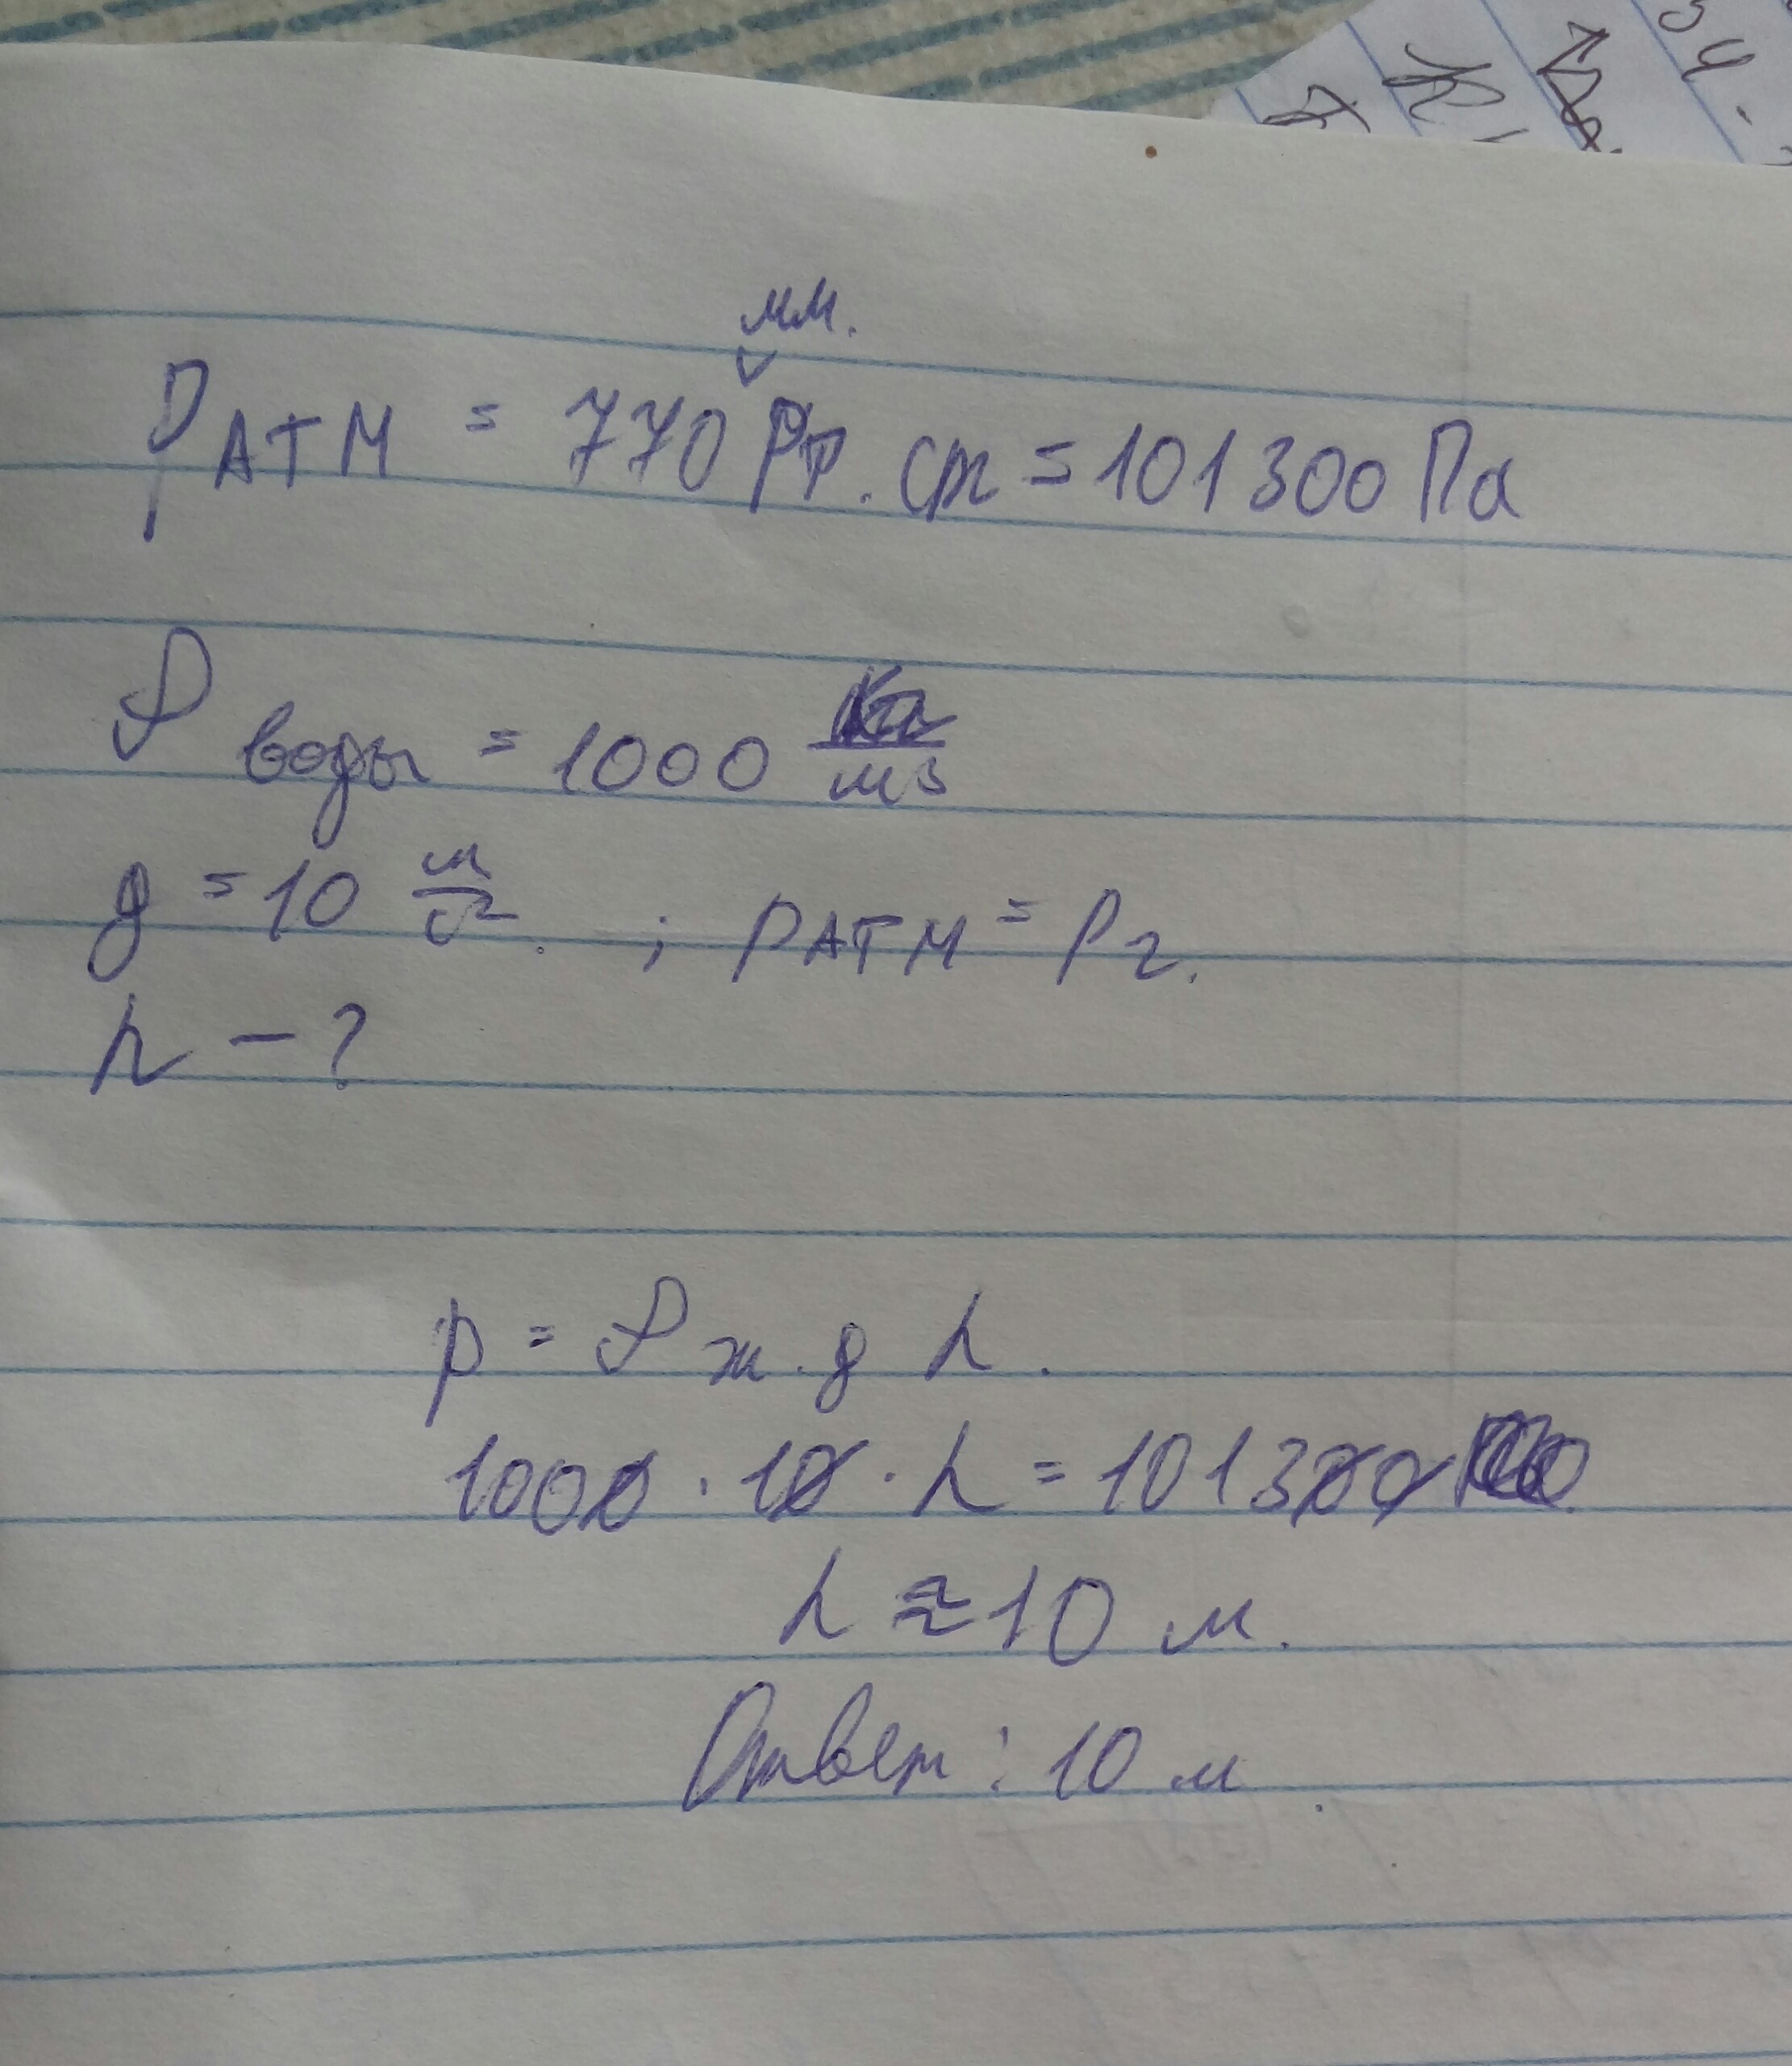 мм.
PАТМ = 770 рт. ст = 101300 Па
ρ воды = 1000 кг/м3
g = 10 м/с2. ; PАТМ = P2.
h - ?
p = ρж. g h.
1000 · 10 · h = 101300
h ≈ 10 м.
Ответ : 10 м.